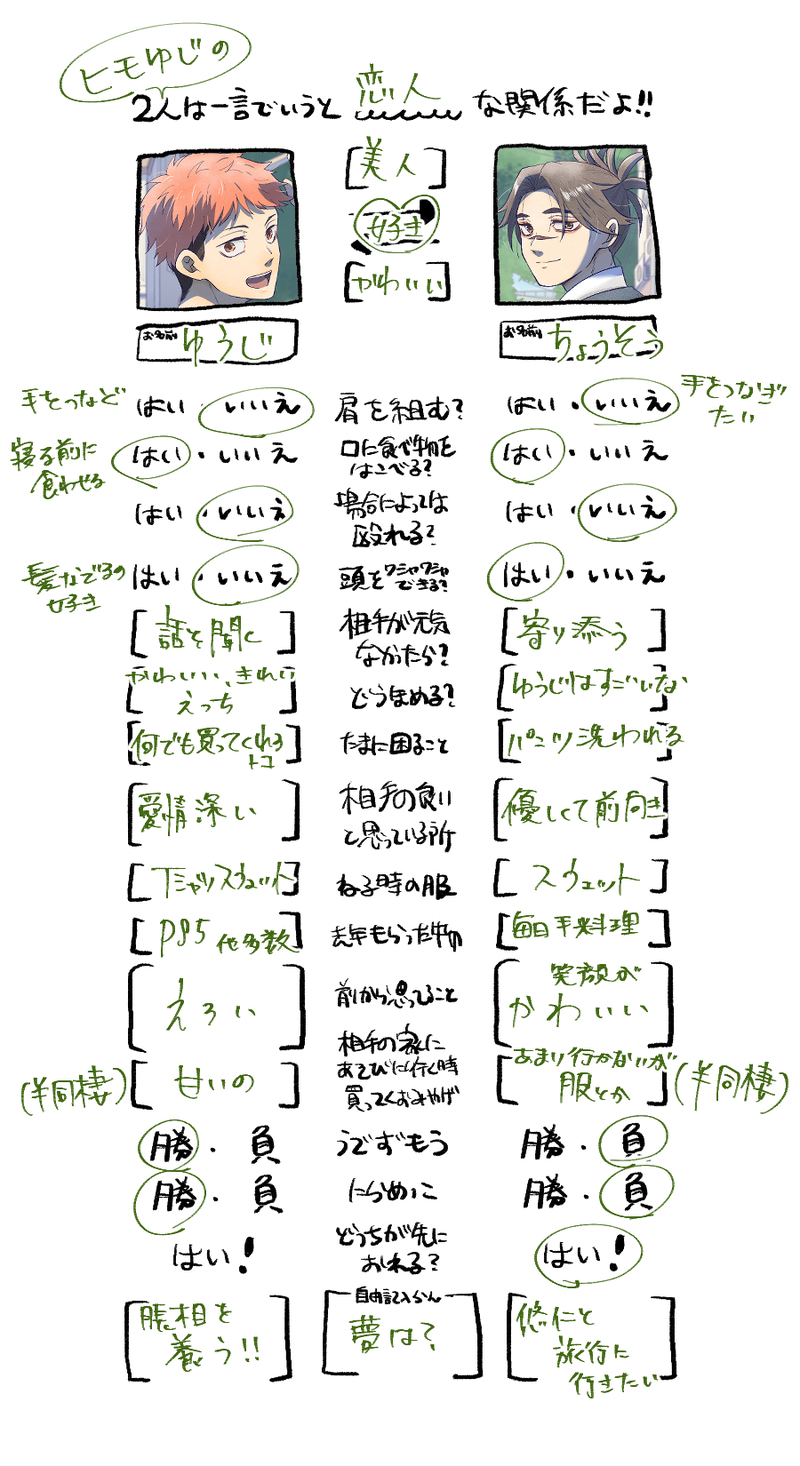 ヒモゆじの
2人は一言でいうと 恋人 な関係だよ!!
[美人]
好き
[かわいい]
お名前 ゆうじ
お名前 ちょうそう
手をつなど はい・いいえ 肩を組む? はい・いいえ 手をつなぎ
たい
寝る前に
食わせる はい・いいえ 口に食べ物を
はこべる? はい・いいえ
はい・いいえ 場合によっては
殴れる? はい・いいえ
髪なでるの
好き はい・いいえ 頭をワシャワシャ
できる? はい・いいえ
[話を聞く] 相手が元気
なかったら? [寄り添う]
[かわいい、きれい
えっち] どうほめる? [ゆうじはすごいな]
[何でも買ってくれる
トコ] たまに困ること [パンツ洗われる]
[愛情深い] 相手の良い
と思っている所 [優しくて前向き]
[Tシャツスウェット] ねる時の服 [スウェット]
[PS5 他多数] 去年もらった物 [毎日手料理]
[えろい] 前から思ってること [笑顔が
かわいい]
(半同棲) [甘いの] 相手の家に
あそびに行く時
買ってくおみやげ [あまり行かないが
服とか] (半同棲)
勝・負 うでずもう 勝・負
勝・負 にらめっこ 勝・負
はい! どっちが先に
おれる? はい!
自由記入らん
[脹相を
養う!!] [夢は?] [悠仁と
旅行に
行きたい]